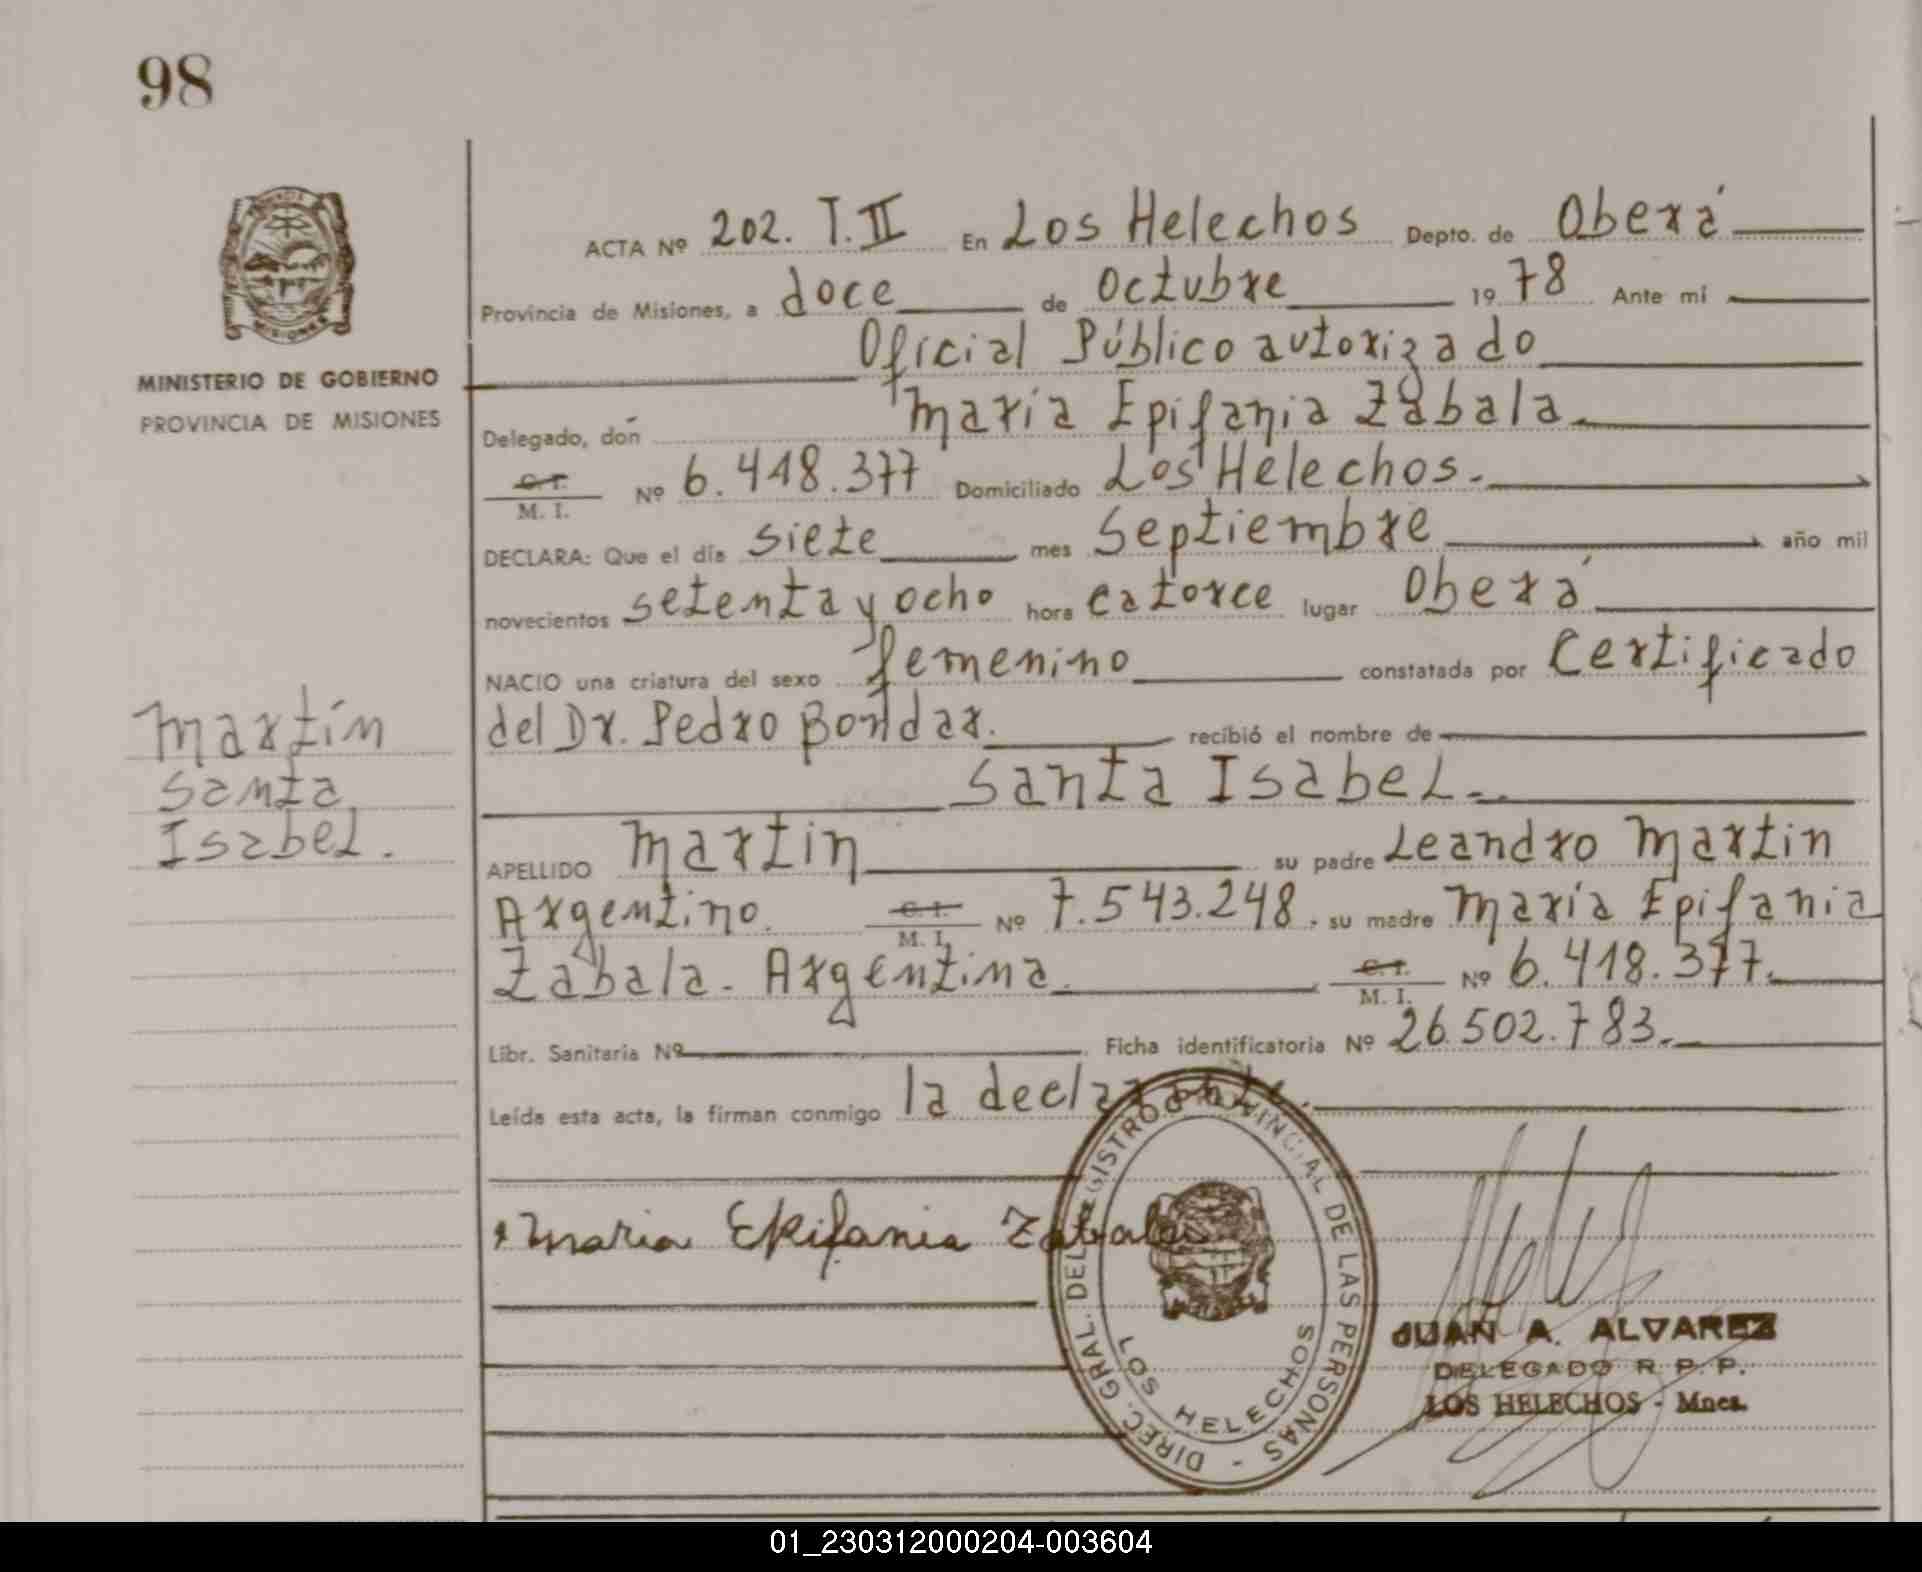 98
MINISTERIO DE GOBIERNO
PROVINCIA DE MISIONES
Martín
Santa
Isabel.
ACTA Nº 202. T. II En Los Helechos Depto. de Oberá
Provincia de Misiones, a doce de Octubre 1978 Ante mi
Oficial Público autorizado
Delegado, don María Epifania Zabala.
C. I. M. I. Nº 6.418.377 Domiciliado Los Helechos.
DECLARA: Que el día siete mes Septiembre año mil
novecientos setenta y ocho hora catorce lugar Oberá
NACIO una criatura del sexo femenino constatada por Certificado
del Dr. Pedro Bondar. recibió el nombre de
Santa Isabel.
APELLIDO Martin su padre Leandro Martin
Argentino. C. I. M. I. Nº 7.543.248. su madre María Epifania
Zabala. Argentina. C. I. M. I. Nº 6.418.377.
Libr. Sanitaria Nº Ficha identificatoria Nº 26.502.783.
Leída esta acta, la firman conmigo la declarante.
Maria Epifania Zabala
DIREC. GRAL. DEL REGISTRO PROVINCIAL DE LAS PERSONAS -
LOS HELECHOS
JUAN A. ALVAREZ
DELEGADO R. P. P.
LOS HELECHOS - Mnes.
01_230312000204-003604